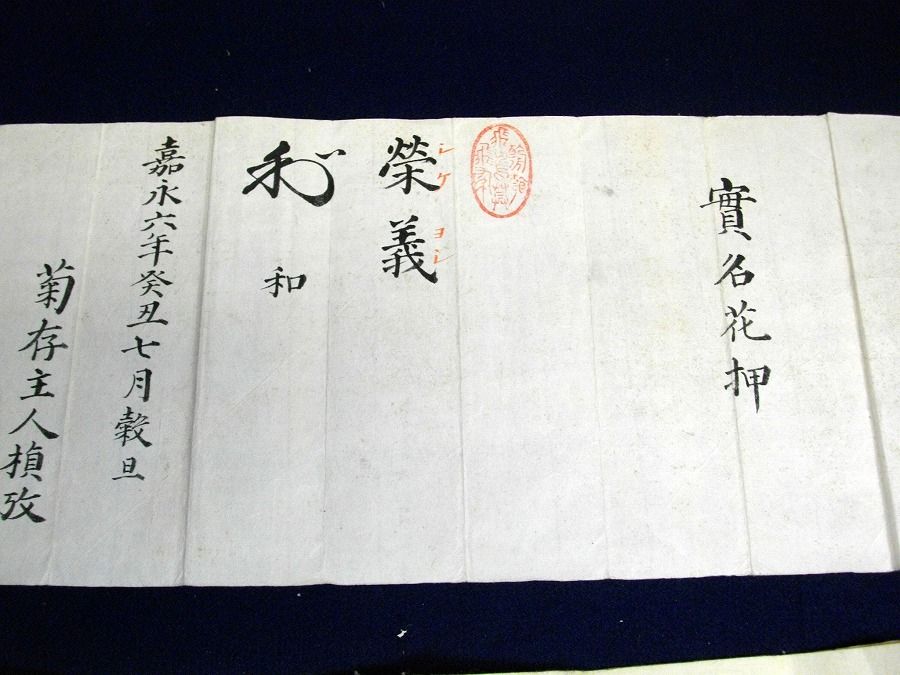 實名花押
榮義
シケヨシ
和
嘉永六年癸丑七月穀旦
菊存主人損攷